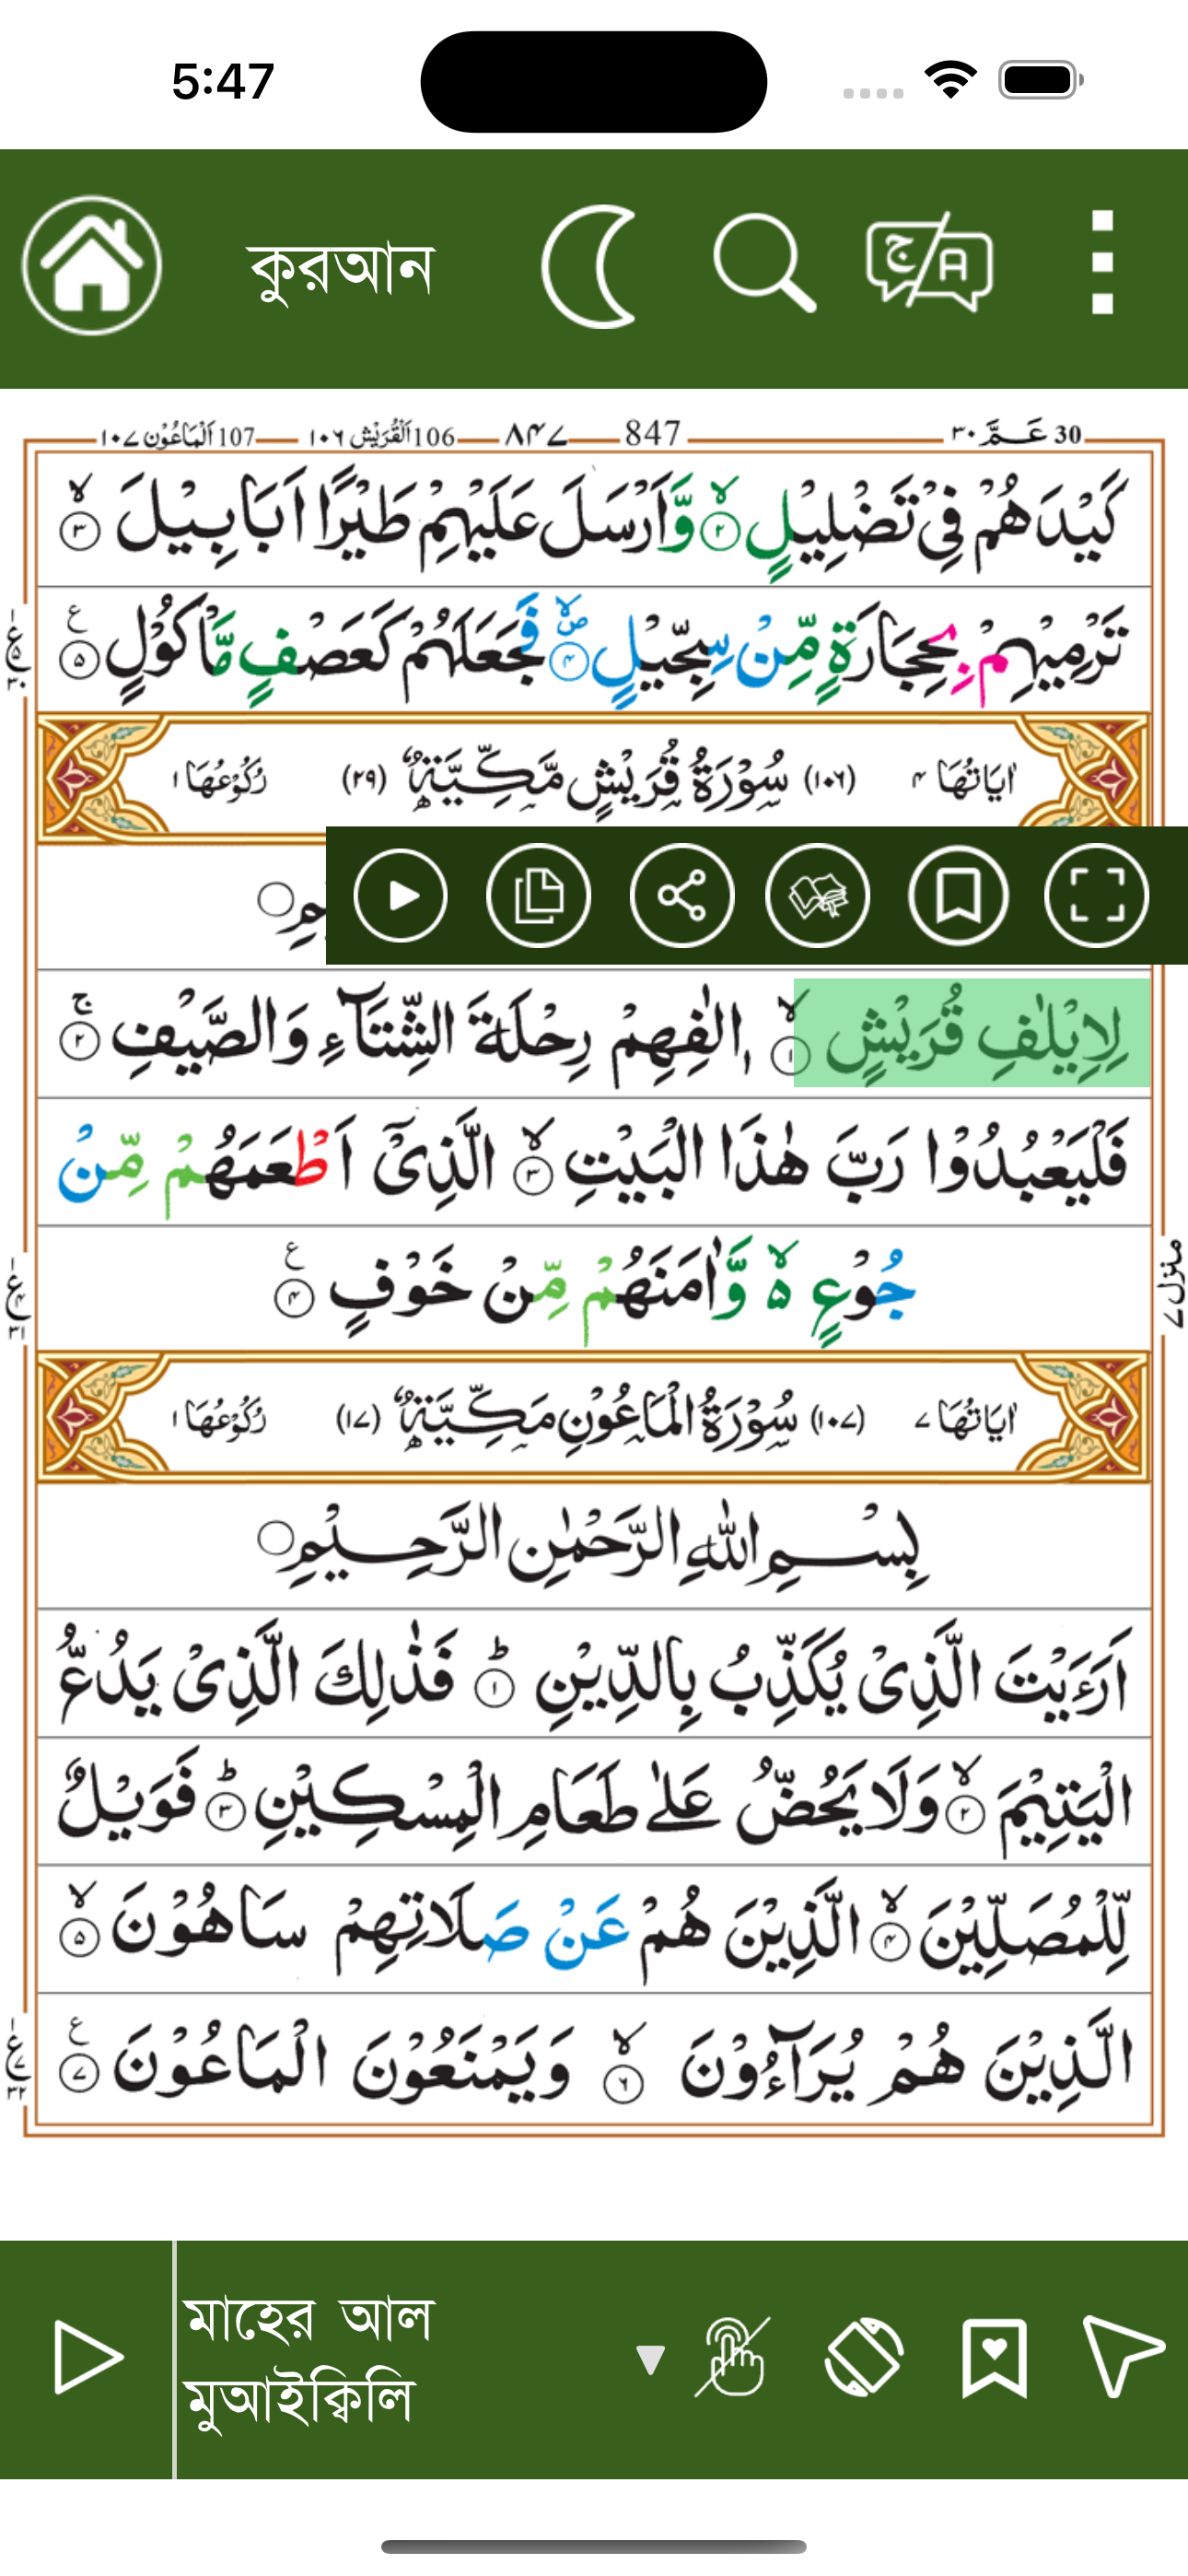 5:47
কুরআন
30 عَـمَّ ٣٠ 847 ٨٤٧ 106 اَلْقُرَيْش ١٠٦ 107 اَلْمَاعُوْن ١٠٧
كَيْدَهُمْ فِيْ تَضْلِيْلٍ ۙ ٢ وَّاَرْسَلَ عَلَيْهِمْ طَيْرًا اَبَابِيْلَ ۙ ٣
تَرْمِيْهِمْ بِحِجَارَةٍ مِّنْ سِجِّيْلٍ ۙ ٤ فَجَعَلَهُمْ كَعَصْفٍ مَّاْكُوْلٍ ع ٥
اٰيَاتُهَا ٤ (١٠٦) سُوْرَةُ قُرَيْشٍ مَّكِّيَّةٌ (٢٩) رُكُوْعُهَا ١
لِاِيْلٰفِ قُرَيْشٍ ۙ ١ اٖلٰفِهِمْ رِحْلَةَ الشِّتَآءِ وَالصَّيْفِ ۚ ٢
فَلْيَعْبُدُوْا رَبَّ هٰذَا الْبَيْتِ ۙ ٣ الَّذِيْٓ اَطْعَمَهُمْ مِّنْ
جُوْعٍ ۙ ٥ وَّاٰمَنَهُمْ مِّنْ خَوْفٍ ع ٤
منزل ٧
اٰيَاتُهَا ٧ (١٠٧) سُوْرَةُ الْمَاعُوْنِ مَكِّيَّةٌ (١٧) رُكُوْعُهَا ١
بِسْمِ اللّٰهِ الرَّحْمٰنِ الرَّحِيْمِ
اَرَءَيْتَ الَّذِيْ يُكَذِّبُ بِالدِّيْنِ ؕ ١ فَذٰلِكَ الَّذِيْ يَدُعُّ
الْيَتِيْمَ ۙ ٢ وَلَا يَحُضُّ عَلٰى طَعَامِ الْمِسْكِيْنِ ؕ ٣ فَوَيْلٌ
لِّلْمُصَلِّيْنَ ۙ ٤ الَّذِيْنَ هُمْ عَنْ صَلَاتِهِمْ سَاهُوْنَ ۙ ٥
الَّذِيْنَ هُمْ يُرَآءُوْنَ ۙ ٦ وَيَمْنَعُوْنَ الْمَاعُوْنَ ع ٧
মাহের আল
মুআইক্বিলি